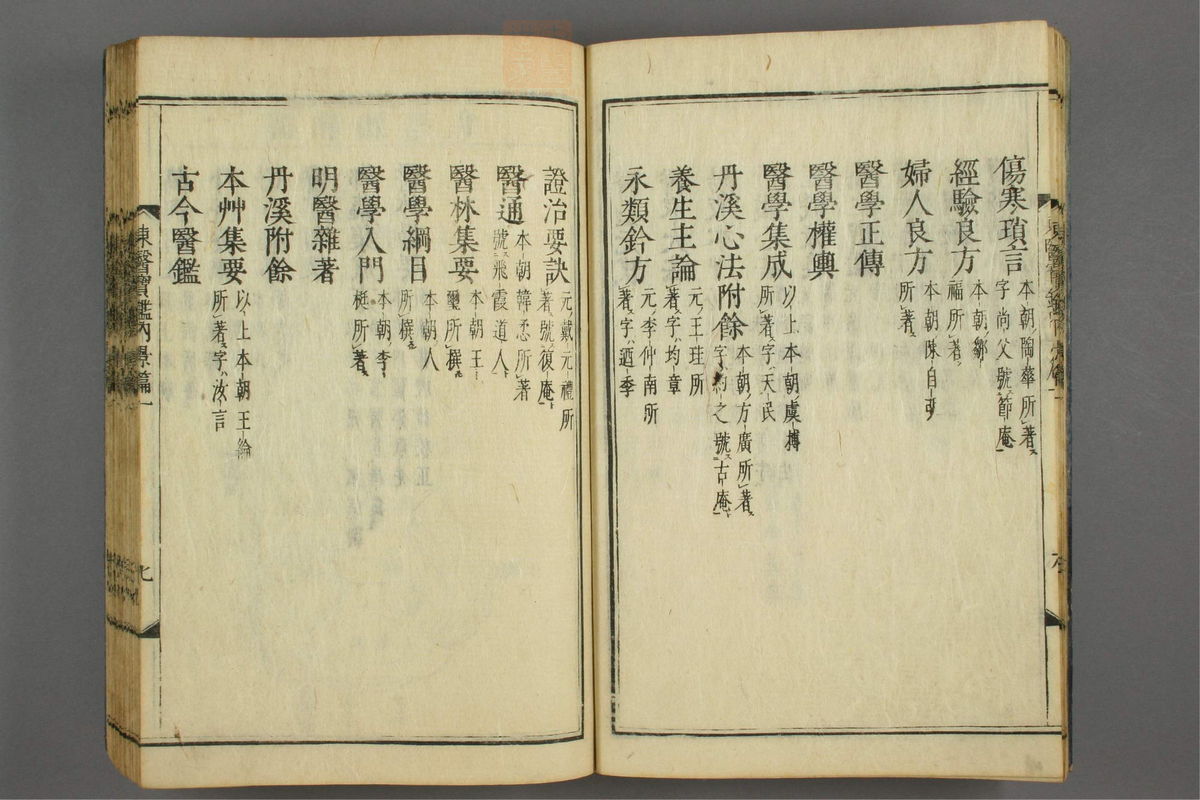 傷寒瑣言 本朝陶華所著字尚父號節庵
經驗良方 本朝鄒福所著
婦人良方 本朝陳自明所著
醫學正傳
醫學權輿
醫學集成 以上本朝虞摶所著字天民
丹溪心法附餘 本朝方廣所著字約之號古庵
養生主論 元王珪所著字均章
永類鈐方 元李仲南所著字迺季
證治要訣 元戴元禮所著號復庵
醫通 本朝韓柔所著號飛霞道人
醫林集要 本朝王璽所撰
醫學綱目 本朝人所撰
醫學入門 本朝李梴所著
明醫雜著
丹溪附餘
本艸集要 以上本朝王綸所著字汝言
古今醫鑑
東醫寶鑑內景篇一
七